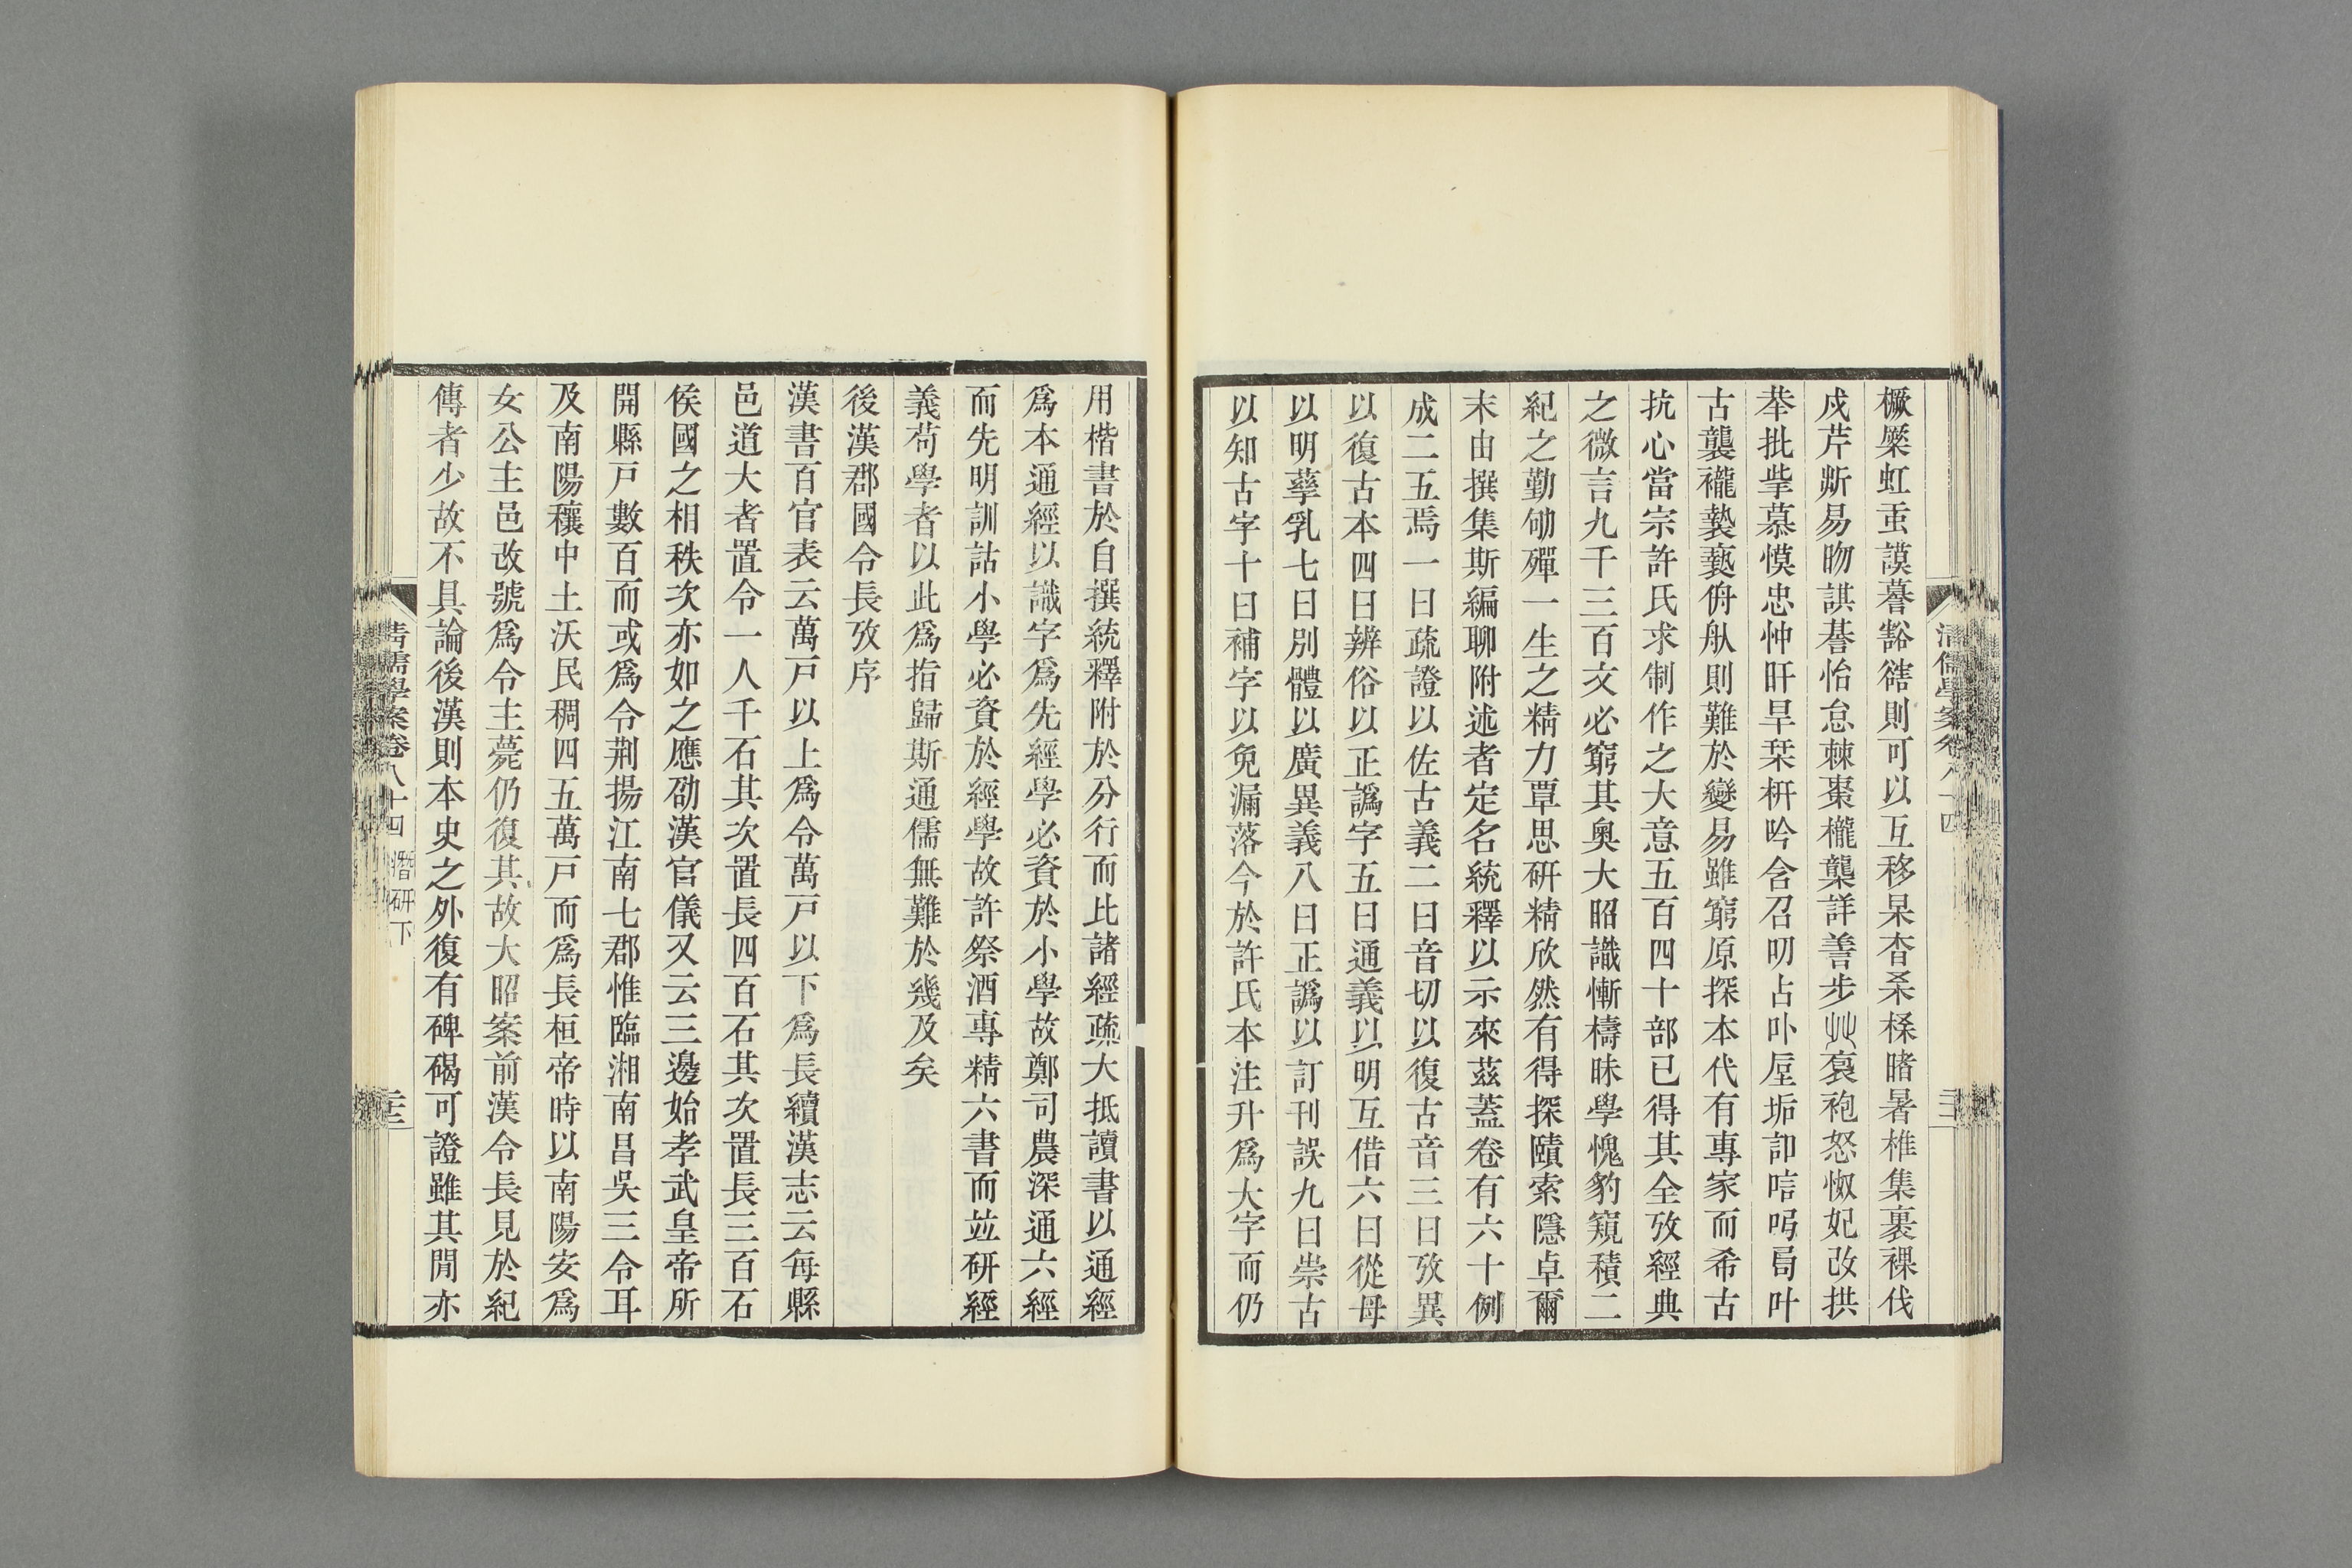 橛檿虹䖝謨謩豁𧯆則可以互移杲杳桑槡暏暑椎集裹裸伐
戍芹㪽易昒諆諅怡怠棘棗櫳龒詳譱步艸袌袍怒㤙妃改拱
拲批㧘慕慔忠忡旰旱栞枅吟含召叨占卟垕垢卶唁呺咼叶
古襲襱褺褻侜舤則難於變易雖窮原探本代有專家而希古
抗心當宗許氏求制作之大意五百四十部已得其全攷經典
之微言九千三百文必窮其奧大昭識慚檮昧學愧豹窺積二
紀之勤劬殫一生之精力覃思研精欣然有得探賾索隱卓爾
末由撰集斯編聊附述者定名統釋以示來茲蓋卷有六十例
成二五焉一曰疏證以佐古義二曰音切以復古音三曰攷異
以復古本四曰辨俗以正譌字五曰通義以明互借六曰從母
以明孳乳七曰別體以廣異義八曰正譌以訂刊誤九曰崇古
以知古字十曰補字以免漏落今於許氏本注升爲大字而仍
用楷書於自撰統釋附於分行而比諸經疏大抵讀書以通經
爲本通經以識字爲先經學必資於小學故鄭司農深通六經
而先明訓詁小學必資於經學故許祭酒專精六書而竝研經
義苟學者以此爲指歸斯通儒無難於幾及矣
後漢郡國令長攷序
漢書百官表云萬戸以上爲令萬戸以下爲長續漢志云每縣
邑道大者置令一人千石其次置長四百石其次置長三百石
侯國之相秩次亦如之應劭漢官儀又云三邊始孝武皇帝所
開縣戸數百而或爲令荆揚江南七郡惟臨湘南昌吳三令耳
及南陽穰中土沃民稠四五萬戸而爲長桓帝時以南陽安爲
女公主邑改號爲令主薨仍復其故大昭案前漢令長見於紀
傳者少故不具論後漢則本史之外復有碑碣可證雖其閒亦
清儒學案卷八十四 潛研下